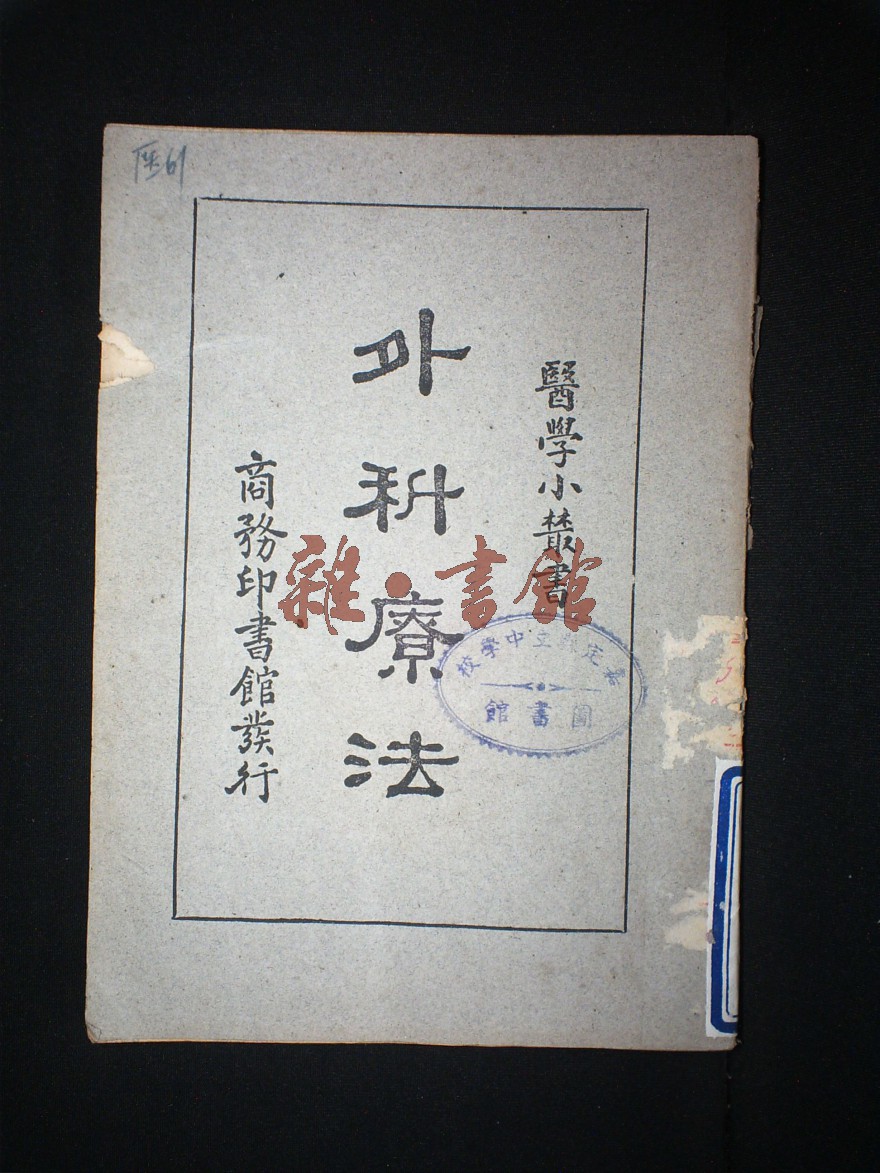 醫學小叢書
外科療法
商務印書館發行
雜·書館
嘉定縣立中學校
圖書館
61